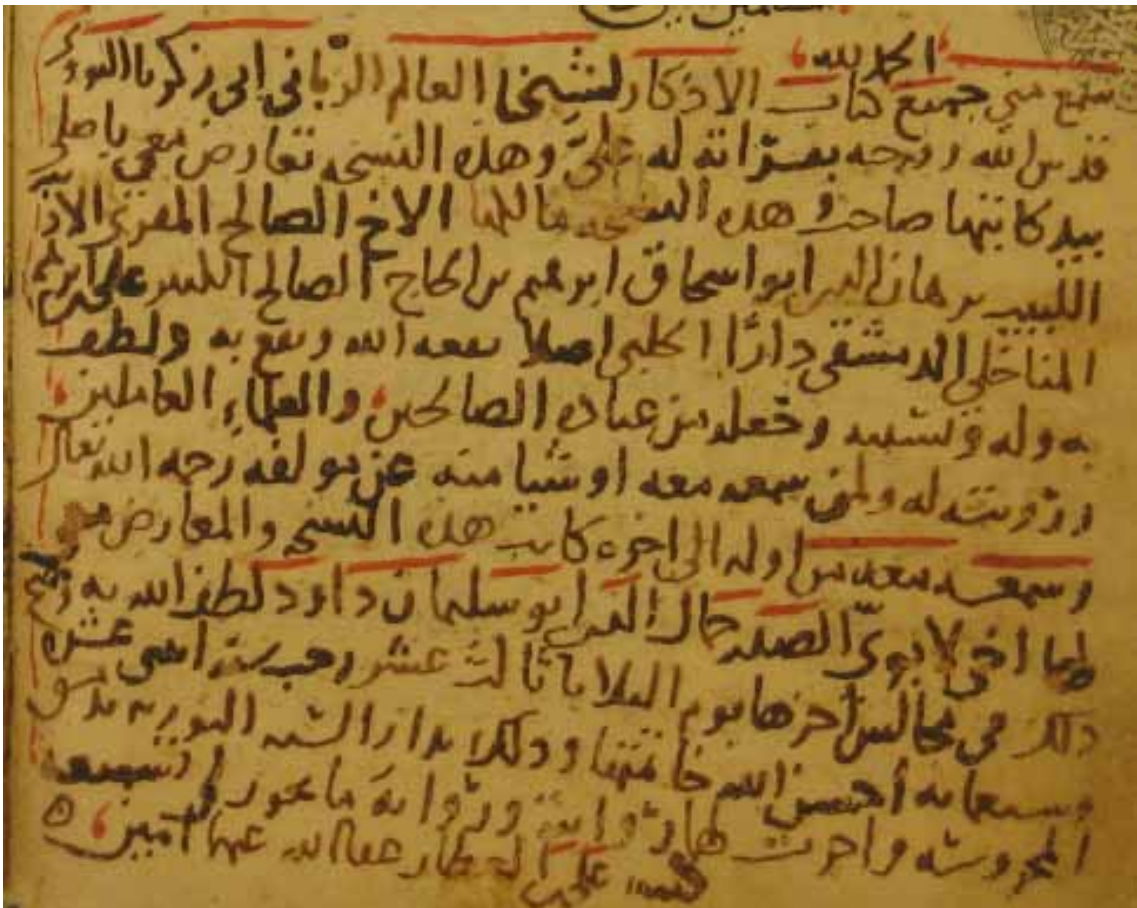 الحمد لله
سمع مني جميع كتاب الاذكار لشيخنا العالم الرباني ابي زكريا النووي
قدس الله روحه بقراته له علي وهذه النسخه تعارض معي باصلي
بيد كاتبها صاحب هذه النسخه مالكها الاخ الصالح المقرئ
اللبيب برهان الدين ابو اسحاق ابرهيم بن الحاج الصالح علي بن ابرهيم
المناخلي الدمشقي دارا الحلبي اصلا نفعه الله ونفع به ولطف
به وله وجعله من عباده الصالحين والعلماء العاملين
ورويته له ولمن سمعه معه او شيا منه عن مولفه رحمه الله تعالى
وسمعه معه من اوله الى اخره كاتب هذه النسخه والمعارض معي
بها اخي لابوي الصدر جمال الدين ابو سليمان داود لطف الله به
ذلك في مجالس اخرها يوم الثلاثا ثالث عشر رجب سنة اثنى عشره
وسبعمايه احسن الله خاتمتها وذلك بدار السنه النوريه بدمشق
المحروسه واجزت لهما روايته ورواية ما يجوز لي تسميعه
كتبه علي بن العطار عفا الله عنهما امين